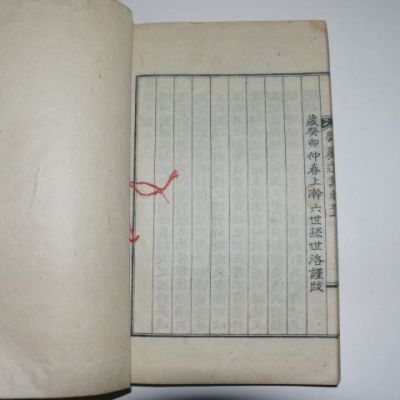 歲癸卯仲春上澣六世孫世洛謹跋